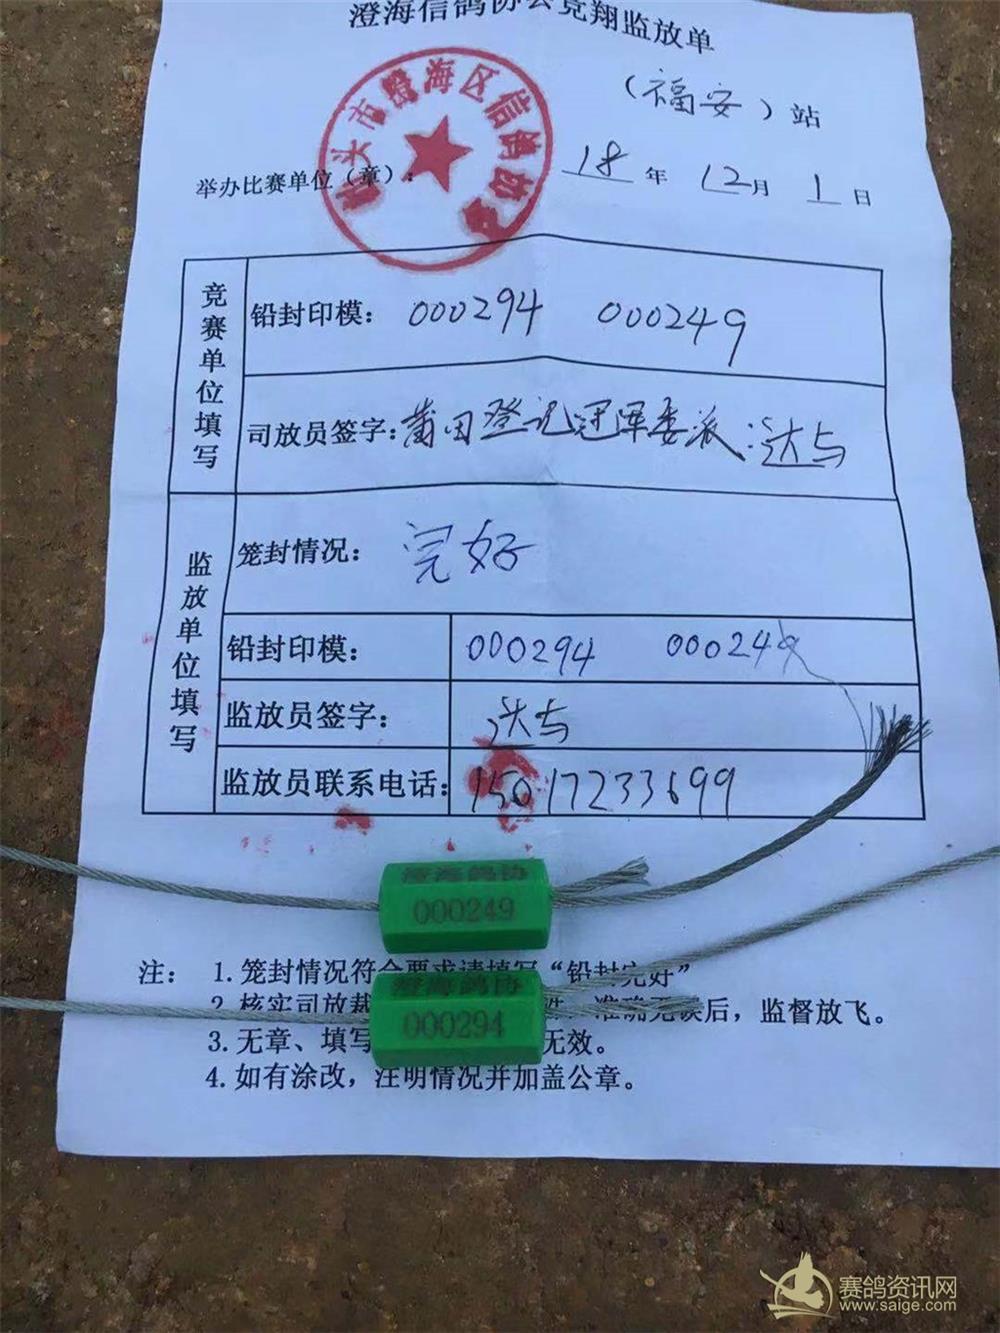 澄海信鸽协会竞翔监放单
(福安)站
汕头市澄海区信鸽协会
举办比赛单位(章): 18年12月1日
竞赛单位填写
铅封印模: 000294 000249
司放员签字: 莆田登记冠军委派:达与
监放单位填写
笼封情况: 完好
铅封印模: 000294 000249
监放员签字: 达与
监放员联系电话: 15017233699
澄海鸽协
000249
注: 1.笼封情况符合要求请填写“铅封完好”
澄海鸽协
000294
2.核实司放裁 准确无误后,监督放飞。
3.无章、填写 无效。
4.如有涂改,注明情况并加盖公章。
赛鸽资讯网
www.saige.com